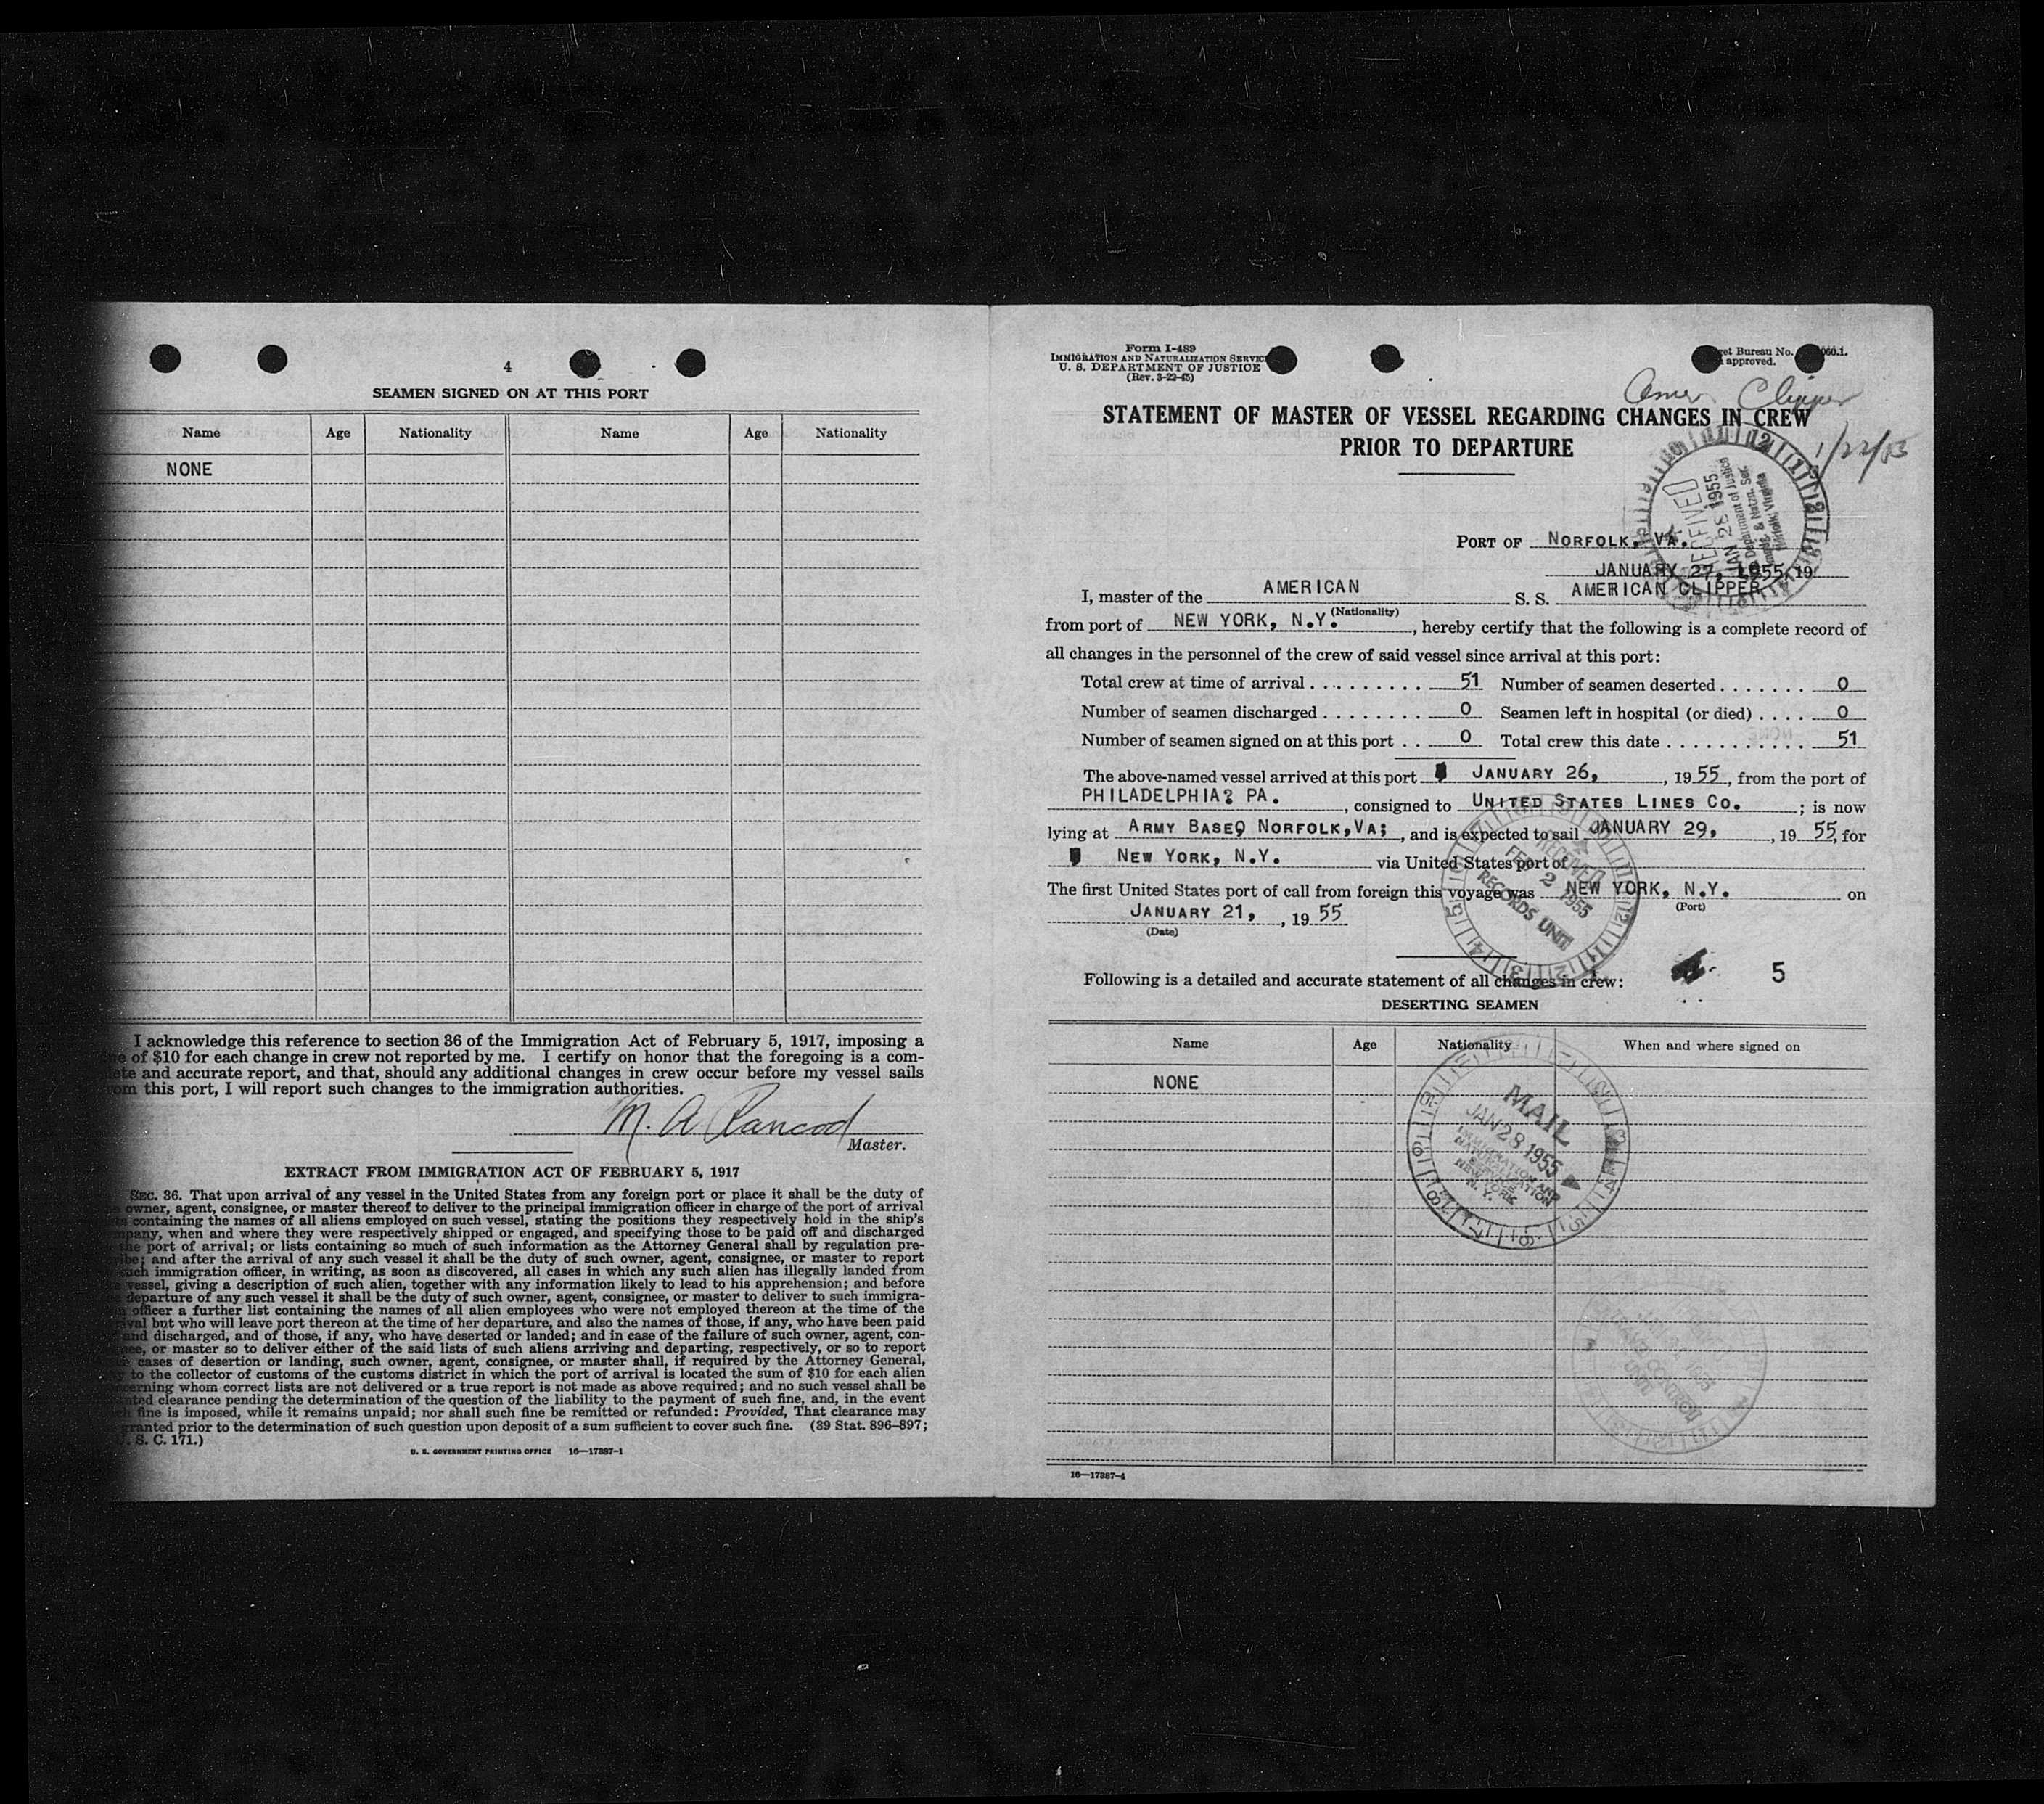 4
SEAMEN SIGNED ON AT THIS PORT
Name Age Nationality Name Age Nationality
NONE
I acknowledge this reference to section 36 of the Immigration Act of February 5, 1917, imposing a
of $10 for each change in crew not reported by me. I certify on honor that the foregoing is a com-
and accurate report, and that, should any additional changes in crew occur before my vessel sails
this port, I will report such changes to the immigration authorities.
M. A.
Master.
EXTRACT FROM IMMIGRATION ACT OF FEBRUARY 5, 1917
SEC. 36. That upon arrival of any vessel in the United States from any foreign port or place it shall be the duty of
owner, agent, consignee, or master thereof to deliver to the principal immigration officer in charge of the port of arrival
containing the names of all aliens employed on such vessel, stating the positions they respectively hold in the ship's
when and where they were respectively shipped or engaged, and specifying those to be paid off and discharged
port of arrival; or lists containing so much of such information as the Attorney General shall by regulation pre-
and after the arrival of any such vessel it shall be the duty of such owner, agent, consignee, or master to report
such immigration officer, in writing, as soon as discovered, all cases in which any such alien has illegally landed from
vessel, giving a description of such alien, together with any information likely to lead to his apprehension; and before
departure of any such vessel it shall be the duty of such owner, agent, consignee, or master to deliver to such immigra-
officer a further list containing the names of all alien employees who were not employed thereon at the time of the
but who will leave port thereon at the time of her departure, and also the names of those, if any, who have been paid
and discharged, and of those, if any, who have deserted or landed; and in case of the failure of such owner, agent, con-
or master so to deliver either of the said lists of such aliens arriving and departing, respectively, or so to report
cases of desertion or landing, such owner, agent, consignee, or master shall, if required by the Attorney General,
to the collector of customs of the customs district in which the port of arrival is located the sum of $10 for each alien
whom correct lists are not delivered or a true report is not made as above required; and no such vessel shall be
clearance pending the determination of the question of the liability to the payment of such fine, and, in the event
fine is imposed, while it remains unpaid; nor shall such fine be remitted or refunded: Provided, That clearance may
granted prior to the determination of such question upon deposit of a sum sufficient to cover such fine. (39 Stat. 896-897;
S. C. 171.)
U. S. GOVERNMENT PRINTING OFFICE 16—17387-1
Form I-489
IMMIGRATION AND NATURALIZATION SERVICE
U. S. DEPARTMENT OF JUSTICE
(Rev. 3-22-45)
Bureau No.
approved.
Amer Clipper
STATEMENT OF MASTER OF VESSEL REGARDING CHANGES IN CREW
PRIOR TO DEPARTURE
RECEIVED
JAN 28 1955
Department of Justice
Norfolk, Virginia
PORT OF NORFOLK, VA.
JANUARY 27, 1955, 19
I, master of the AMERICAN S. S. AMERICAN CLIPPER
(Nationality)
from port of NEW YORK, N.Y., hereby certify that the following is a complete record of
all changes in the personnel of the crew of said vessel since arrival at this port:
Total crew at time of arrival 51 Number of seamen deserted 0
Number of seamen discharged 0 Seamen left in hospital (or died) 0
Number of seamen signed on at this port 0 Total crew this date 51
The above-named vessel arrived at this port JANUARY 26, , 19 55, from the port of
PHILADELPHIA? PA. , consigned to UNITED STATES LINES CO. ; is now
lying at ARMY BASEQ NORFOLK,VA; , and is expected to sail JANUARY 29, , 19 55, for
NEW YORK, N.Y. via United States port of
The first United States port of call from foreign this voyage was NEW YORK, N.Y. on
(Port)
JANUARY 21, , 19 55
(Date)
RECEIVED
FEB 2 1955
RECORDS UNIT
Following is a detailed and accurate statement of all changes in crew: 5
DESERTING SEAMEN
Name Age Nationality When and where signed on
NONE
MAIL
JAN 28 1955
IMMIGRATION AND
NATURALIZATION
SERVICE
NEW YORK
N. Y.
16—17387-4